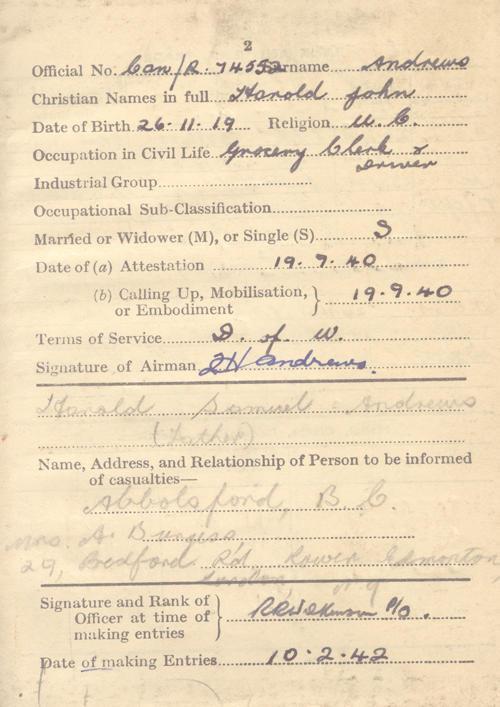 2
Official No. Can/R. 74552 Surname Andrews
Christian Names in full Harold John
Date of Birth 26·11·19 Religion U. C.
Occupation in Civil Life Grocery Clerk &
Driver
Industrial Group
Occupational Sub-Classification
Married or Widower (M), or Single (S) S
Date of (a) Attestation 19.9.40
(b) Calling Up, Mobilisation, or Embodiment } 19.9.40
Terms of Service D. of W.
Signature of Airman Andrews.
Harold Samuel Andrews
(Father)
Name, Address, and Relationship of Person to be informed
of casualties—
Abbotsford, B.C.
Mrs. A. Burgess,
29, Bedford Rd Lower Edmonton
London, N9
Signature and Rank of
Officer at time of
making entries } RRWilkinson P/O.
Date of making Entries 10·2·42